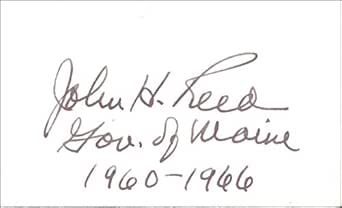 John H. Reed
Gov. of Maine
1960-1966